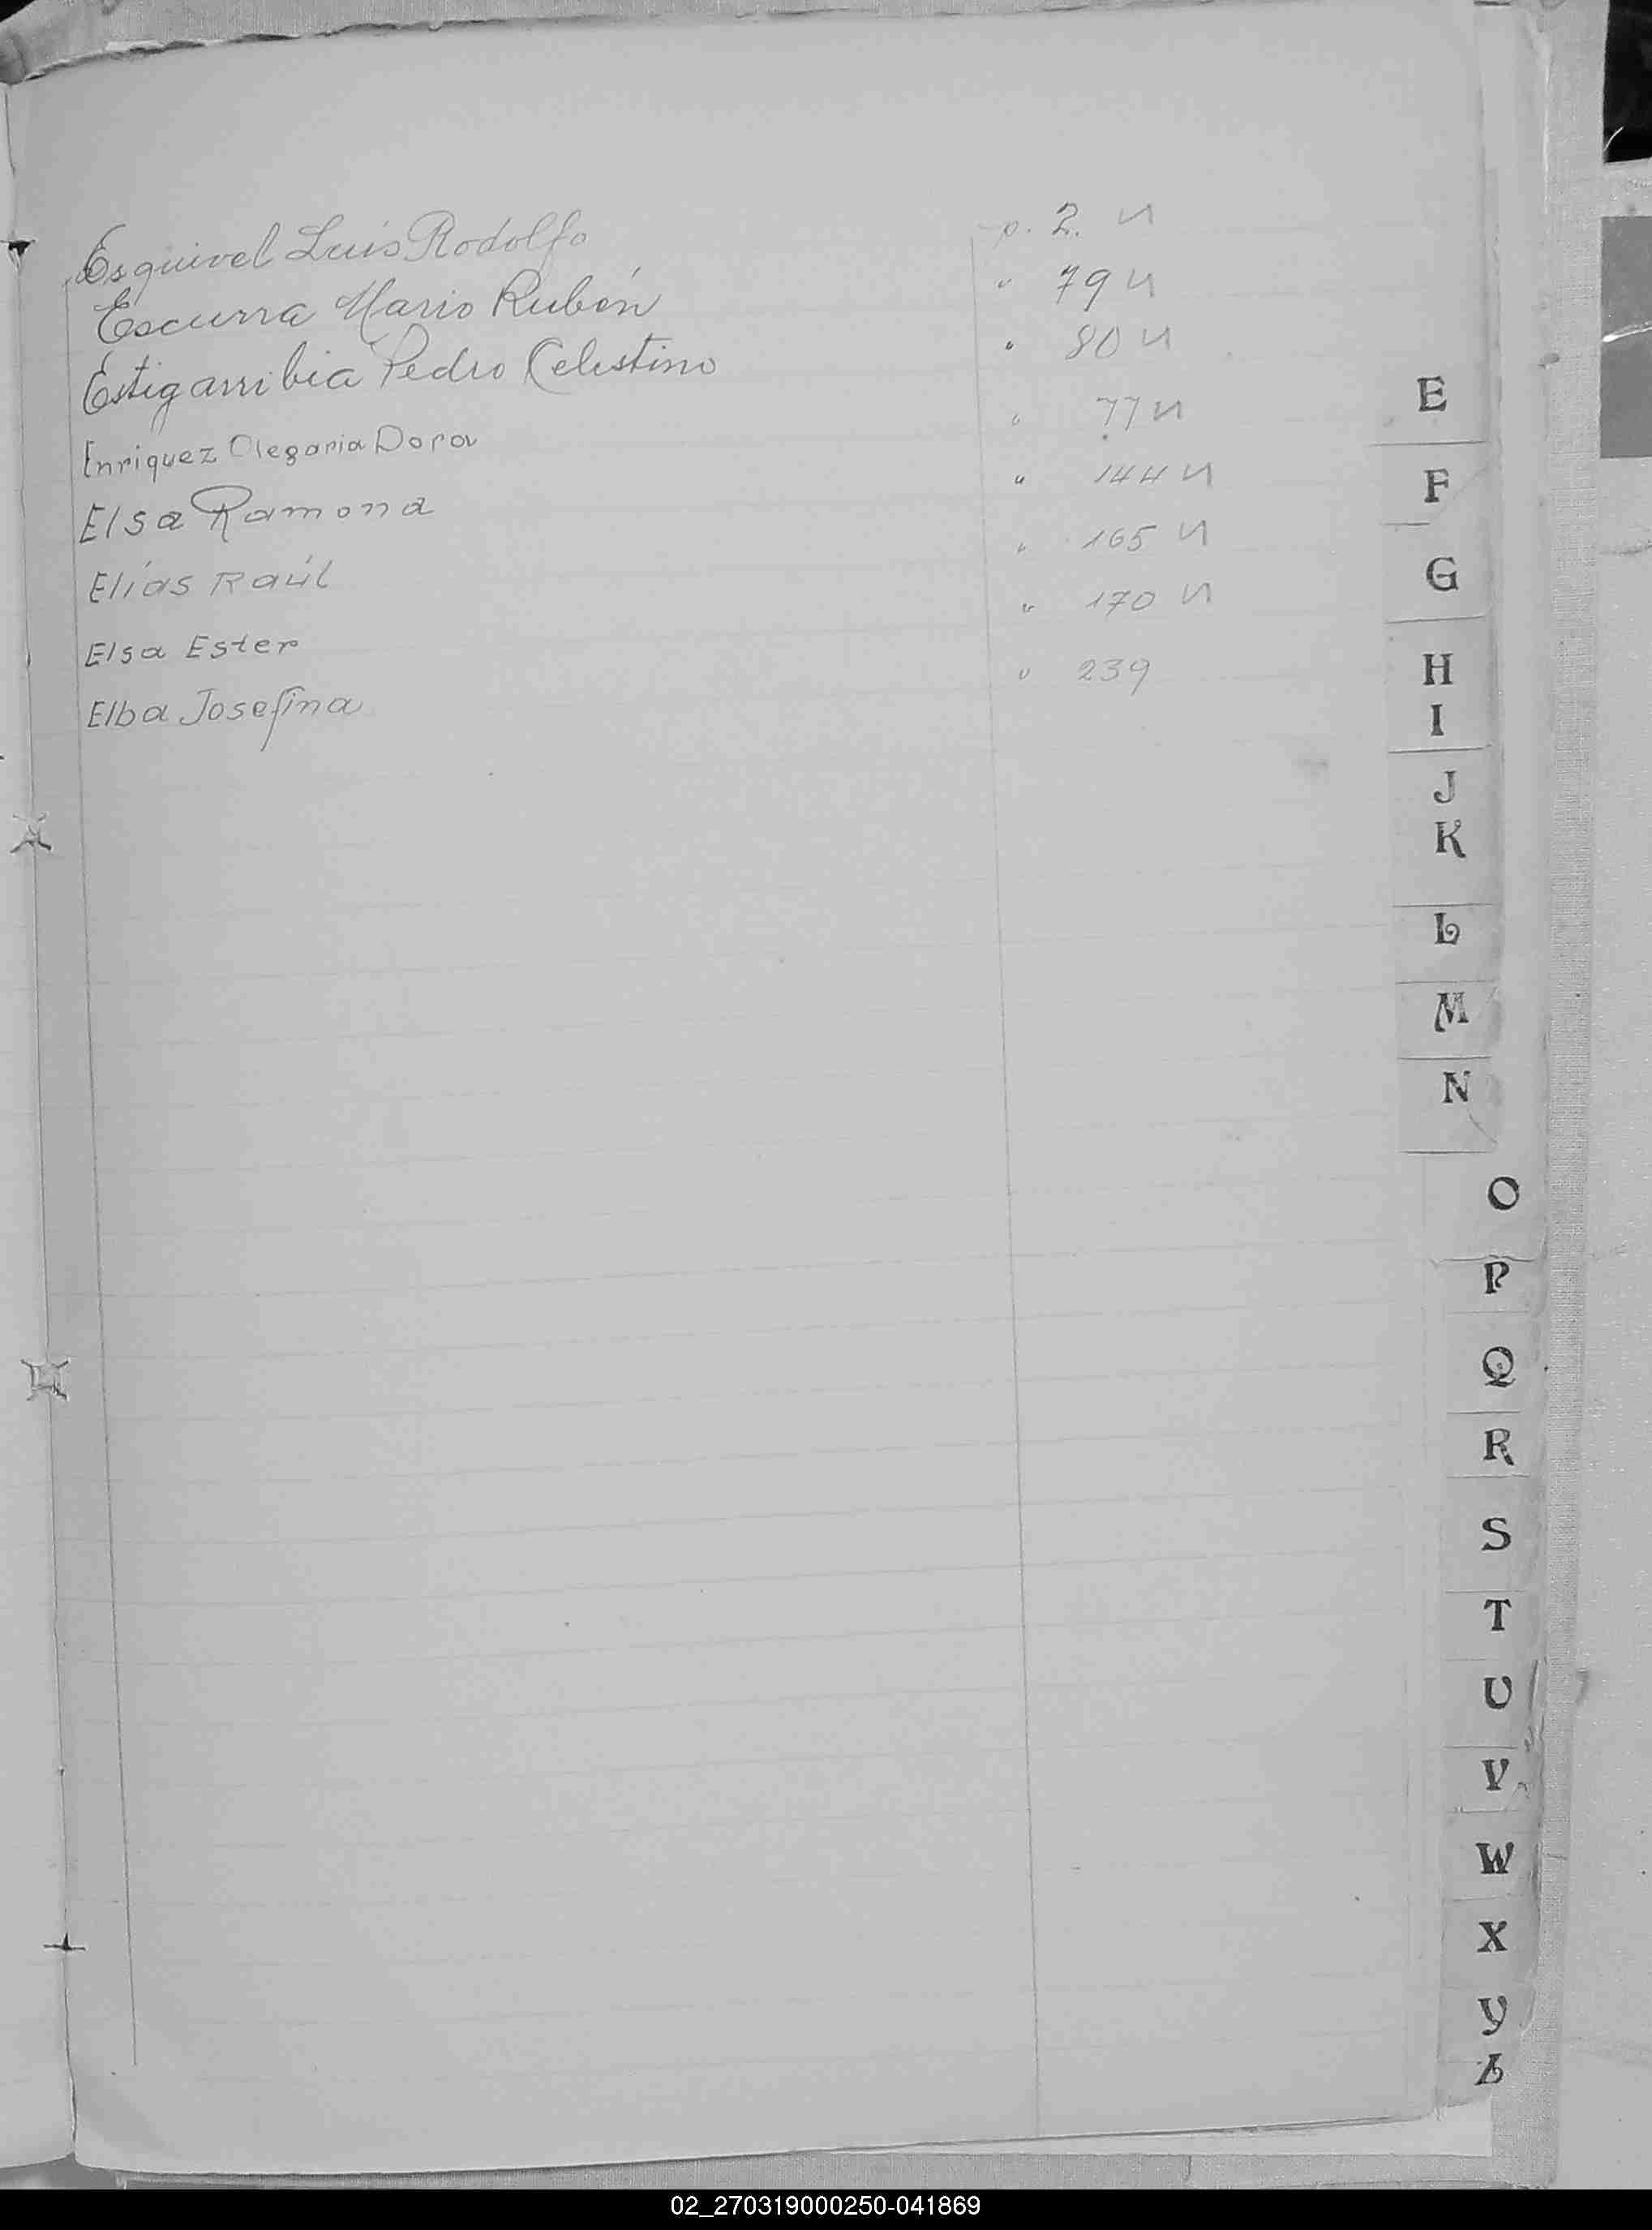 Esquivel Luis Rodolfo p. 2. И
Escurra Mario Rubén " 79 И
Estigarribia Pedro Celestino " 80 И
Enriquez Olegaria Dora " 77 И
Elsa Ramona " 144 И
Elías Raúl " 165 И
Elsa Ester " 170 И
Elba Josefina " 239
E
F
G
H
I
J
K
L
M
N
O
P
Q
R
S
T
U
V
W
X
Y
Z
02_270319000250-041869